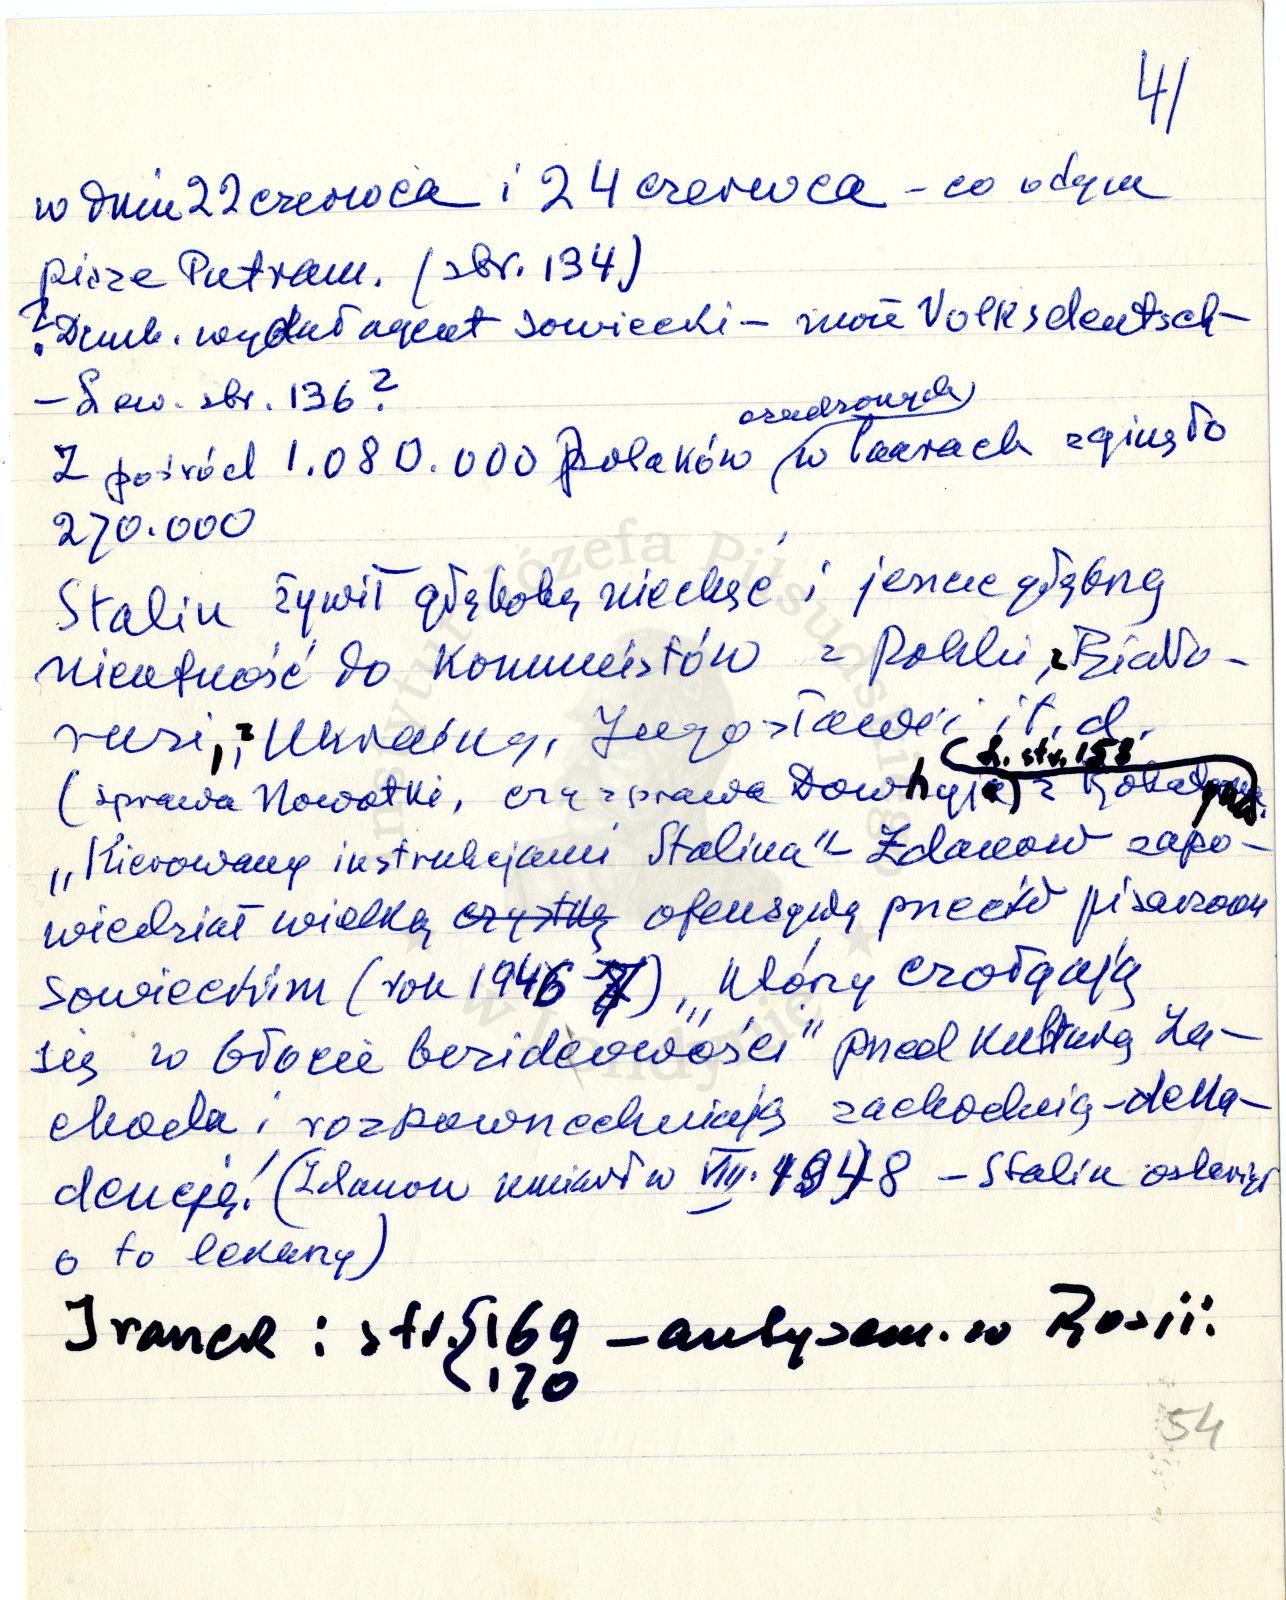 4/
w dniu 22 czerwca i 24 czerwca – co o tym
pisze Putram. (str. 134)
? wydał agent sowiecki – może Volksdeutsch –
– Lew. str. 136?
osadzonych
Z pośród 1.080.000 Polaków w łagrach zginęło
270.000
Stalin żywił głęboką niechęć i jeszcze głębszą
nieufność do komunistów z Polski, z Biało-
rusi, z Ukrainy, Jugosławii i t. d.
L. str. 158
(sprawa Nowotki, czy sprawa z
„Kierowany instrukcjami Stalina" – Żdanow zapo-
wiedział wielką czystkę ofensywę przeciw pisarzom
sowieckim (rok 1946 7) „którzy czołgają
się w błocie bezideowości" przed kulturą Za-
chodu i rozpowszechniają zachodnią – deka-
dencję! (Żdanow umarł w VIII. 1948 – Stalin oskarżył
o to lekarzy)
Iranek : str. { 169 – antysem. w Rosji.
170
54
Instytut Józefa Piłsudskiego
w Londynie